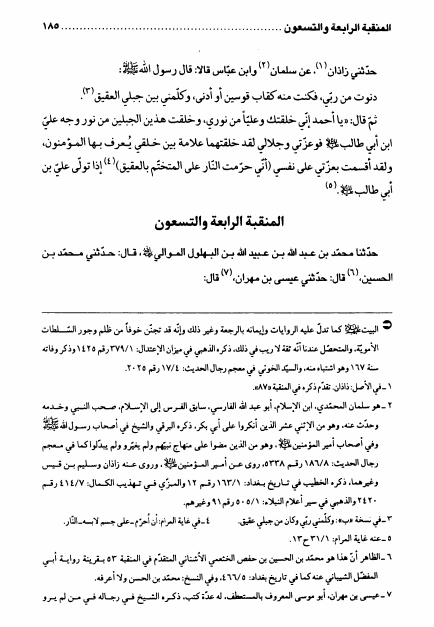 المنقبة الرابعة والتسعون ........................................................ ١٨٥
حدّثني زاذان(١)، عن سلمان(٢) وابن عبّاس قالا: قال رسول اللهﷺ:
دنوت من ربّي، فكنت منه كقاب قوسين أو أدنى، وكلّمني بين جبلي العقيق(٣).
ثمّ قال: «يا أحمد إنّي خلقتك وعليّاً من نوري، وخلقت هذين الجبلين من نور وجه عليّ
ابن أبي طالب فوعزّتي وجلالي لقد خلقتهما علامة بين خلقي يُعرف بها المؤمنون،
ولقد أقسمت بعزّتي على نفسي (أنّي حرّمت النّار على المتختّم بالعقيق)(٤) إذا تولّى عليّ بن
أبي طالب.(٥)
المنقبة الرابعة والتسعون
حدّثنا محمّد بن عبد الله بن عبيد الله بن البهلول الموالي، قال: حدّثني محمد بن
الحسين،(٦) قال: حدّثني عيسى بن مهران،(٧) قال:
البيت كما تدلّ عليه الروايات وإيمانه بالرجعة وغير ذلك وإنّه قد تجنّن خوفاً من ظلم وجور السّلطات
الأمويّة. والمتحصّل عندنا أنّه ثقة لا ريب في ذلك، ذكره الذهبي في ميزان الإعتدال: ٣٧٩/١ رقم ١٤٢٥ وذكر وفاته
سنة ١٦٧ وهو اشتباه منه، والسيّد الخوئي في معجم رجال الحديث: ١٧/٤ رقم ٢٠٢٥.
١ – في الأصل: ذاذان. تقدّم ذكره في المنقبة «٨٧».
٢ – هو سلمان المحمّدي، ابن الإسلام، أبو عبد الله الفارسي، سابق الفرس إلى الإسلام، صحب النبي وخدمه
وحدّث عنه، وهو من الإثني عشر الذين أنكروا على أبي بكر، ذكره البرقي والشيخ في أصحاب رسول اللهﷺ
وفي أصحاب أمير المؤمنين، وهو من الذين مضوا على منهاج نبيّهم ولم يغيّروا ولم يبدّلوا كما في معجم
رجال الحديث: ١٨٦/٨ رقم ٥٣٣٨، روى عن أمير المؤمنين، وروى عنه زاذان وسليم بن قيس
وغيرهما، ذكره الخطيب في تاريخ بغداد: ١٦٣/١ رقم ١٢ والمزي في تهذيب الكمال: ٤١٤/٧ رقم
٢٤٢٠ والذهبي في سير أعلام النبلاء: ٥٠٥/١ رقم ٩١ وغيرهم.
٣ – في نسخة «ب»: وكلّمني ربّي وكان من جبلي عقيق. ٤ – في غاية المرام: أن أحرّم – على جسم لابسه – النّار.
٥ – عنه غاية المرام: ٣١/١ ح١٣.
٦ – الظاهر أنّ هذا هو محمّد بن الحسين بن حفص الخثعمي الأشناني المتقدّم في المنقبة ٥٣ بقرينة رواية أبي
المفضّل الشيباني عنه كما في تاريخ بغداد: ٤٦٦/٥، وفي النسخ: محمّد بن الحسن ولا أعرفه.
٧ – عيسى بن مهران، أبو موسى المعروف بالمستعطف، له عدّة كتب، ذكره الشيخ في رجاله في من لم يرو